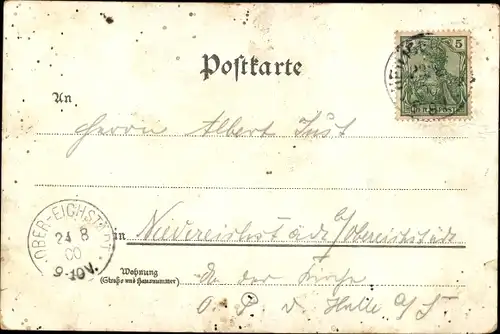 5
Postkarte
An
Herrn Albert Just
OBER-EICHSTÄDT
24 8
00
9-10V.
in Niedereichstädt b/Obereichstädt
Wohnung
(Straße und Hausnummer)
An der Kirche
d. Halle a/S